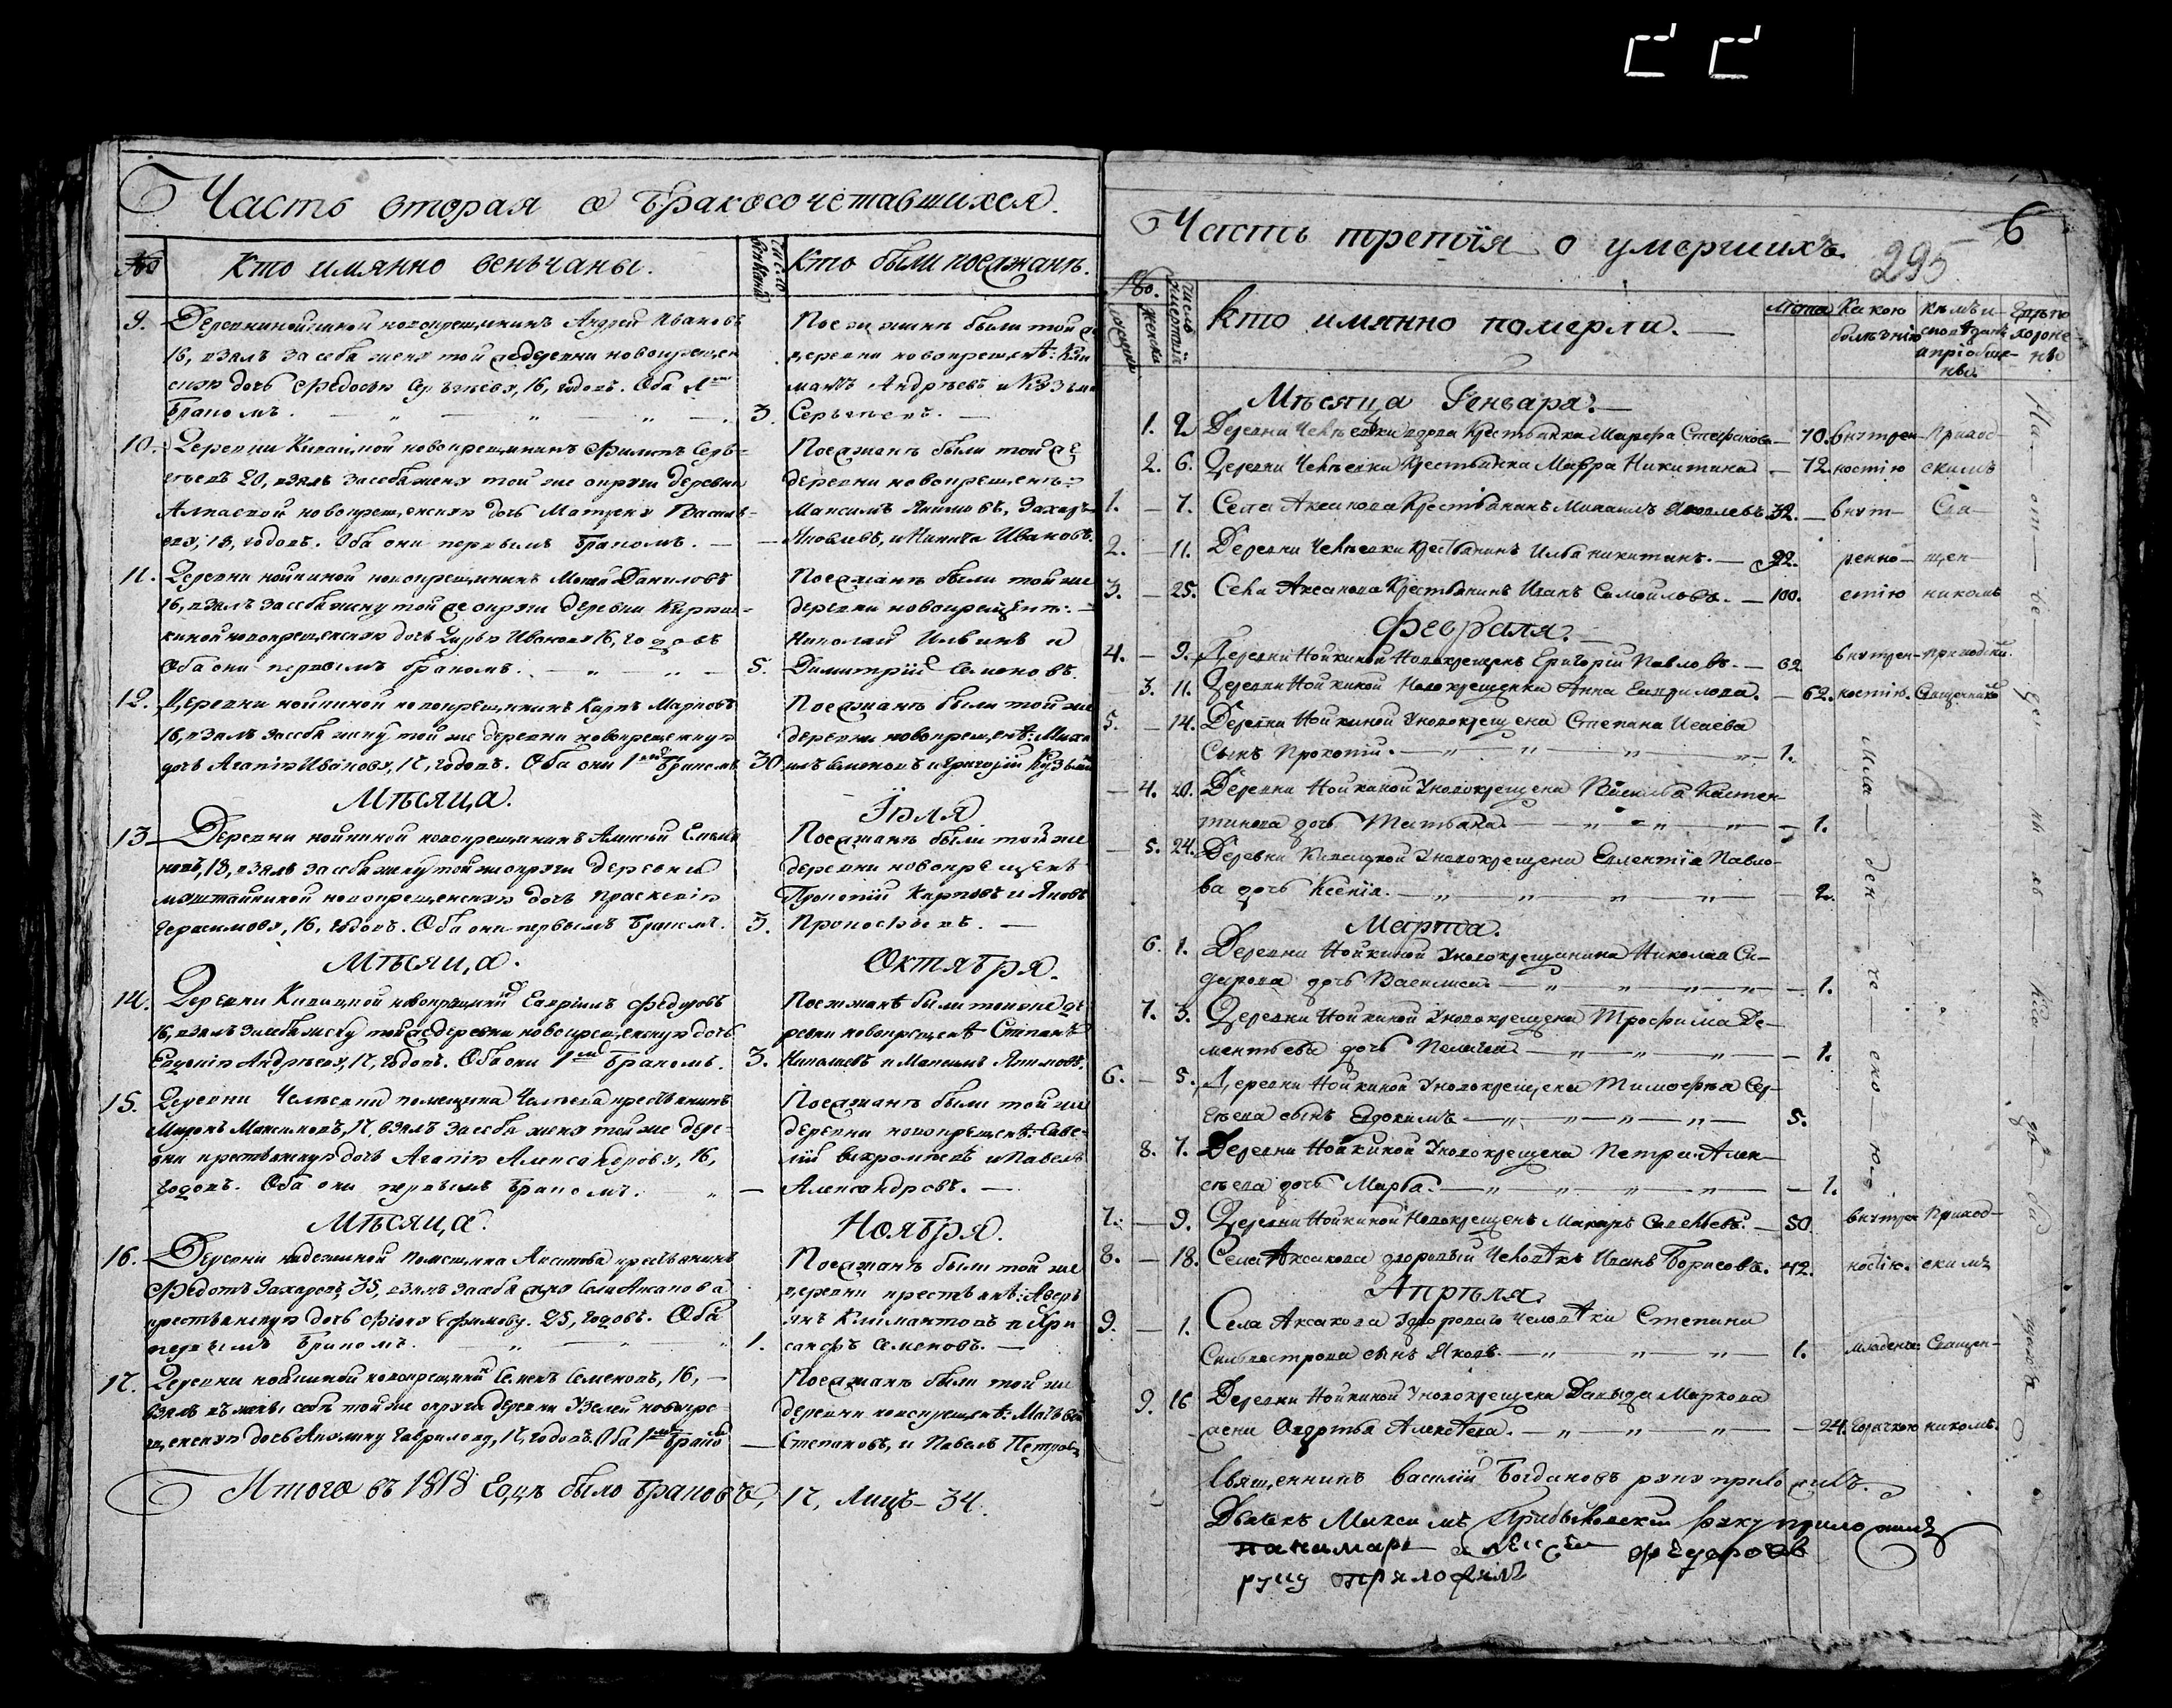 Часть вторая о бракосочетавшихся.
№
Кто имянно веньчаны.
число венчания
Кто были посажанъ.
9. Деревни нойкиной новокрещеннинъ Андрей Ивановъ
16, взялъ за себя жену той же деревни новокрещен
скую дочь Федосью Сергѣеву, 16, годовъ. Оба 1мъ
бракомъ. 3.
Посажанъ были той же
деревни новокрещенѣ:
Андрѣевъ и Кузьма
Сергѣевъ.
10. Деревни новокрещеннинъ Филипъ Серь-
гѣевъ 20, взялъ за себя жену той же округи деревни
новокрещенскую дочь Матрену Василь-
еву, 18, годовъ. Оба они первымъ бракомъ. —
Посажанъ были той же
деревни новокрещенъ:
Максимъ Якимовъ, Захаръ
Яковлевъ, и Никита Ивановъ.
11. Деревни нойкиной новокрещеннинъ Даниловъ
16, взялъ за себя жену той же округи деревни
киной новокрещенскую дочь Дарью Иванову 16, годовъ
Оба они первымъ бракомъ. 5.
Посажанъ были той же
деревни новокрещенъ:
Николай Ильинъ и
Димитрий Семеновъ.
12. Деревни нойкиной новокрещеннинъ Карпъ Марковъ
16, взялъ за себя жену той же деревни новокрещенскую
дочь Агапию Иванову, 17, годовъ. Оба они 1мъ бракомъ 30.
Посажанъ были той же
деревни новокрещенѣ: Миха
илъ Семеновъ и Григорий
Мѣсяца. Іюля
13. Деревни нойкиной новокрещеннинъ
новъ, 18, взялъ за себя жену той же округи деревни
новокрещенскую дочь Прасковию
Герасимову, 16, годовъ. Оба они первымъ бракомъ. 3.
Посажанъ были той же
деревни новокрещенѣ
Прокопий Карповъ и Яковъ
Прокофьевъ. —
Мѣсяца. Октября.
14. Деревни новокрещенинъ Гаврилъ Федоровъ
16, взялъ за себя жену той же деревни новокрещенскую дочь
Евдокию Андрѣеву, 17, годовъ. Оба они 1мъ бракомъ. 3.
Посажанѣ были той же де
ревни новокрещенѣ Степанъ
Николаевъ и Максимъ Якимовъ.
15. Деревни Челѣевки помещика Челѣева крестьянинъ
Миронъ Максимовъ, 17, взялъ за себя жену той же дере-
вни крестьянскую дочь Агапию Александрову, 16,
годовъ. Оба они первымъ бракомъ. —
Посажанъ были той же
деревни новокрещенѣ: Саве-
лий и Павелъ
Александровъ. —
Мѣсяца. Ноября.
16. Деревни надежиной помещика Аксакова крестьянинъ
Федотъ Захаровъ 35, взялъ за себя жену села Аксакова
крестьянскую дочь Ефимову. 25, годовъ. Оба
первымъ бракомъ. 1.
Посажанъ были той же
деревни крестьянѣ: Аверь
янъ и Хри
санфъ Семеновъ. —
17. Деревни нойкиной новокрещенинъ Семенъ Семеновъ, 16, —
взялъ въ жены себе той же округи деревни Узелей новокре-
щенскую дочь Акулину Гаврилову, 17, годовъ. Оба 1мъ бракомъ —
Посажанъ были той же
деревни новокрещенѣ: Матвей
Степановъ, и Павелъ Петровъ
Итого въ 1818 году было браковъ, 17, Лицъ - 34.
Часть третия о умершихъ.
6
295
№.
мужеска
женска
число умертвий
кто имянно померли. —
Лѣта
Какою болѣзнию
Кемъ исповѣданъ и приобщенъ.
Где похороненъ
Мѣсяца Генваря. —
1. 2. Деревни Челѣевки вдова Крестьянка Марфа Стефанова — 70. внутрен- приход-
2. 6. Деревни Челѣевки Крестьянка Мавра Никитина — 72. ностию скимъ
1. — 7. Села Аксакова Крестьянинъ Михаилъ Яковлевъ 32. — внут- Свя-
2. — 11. Деревни Челѣевки Крестьянинъ Илья Никитинъ. — 92. ренно- щен-
3. — 25. Села Аксакова Крестьянинъ Иванъ Самойловъ. — 100. стию никомъ
Февраля. —
4. — 9. Деревни Нойкиной Новокрещенъ Григорий Павловъ. — 62 внутрен- приходски.
3. 11. Деревни Нойкиной Новокрещенка Анна Гаврилова. — 62. ностию. Священнико
5. — 14. Деревни Нойкиной У новокрещена Степана Исаева
Сынъ Прокопий. — 1.
— 4. 20. Деревни Нойкиной У новокрещена Василья Кастен-
тинова дочь Татьяна. — 1.
— 5. 24. Деревни У новокрещена Павло-
ва дочь Ксения. — 2.
Марта.
6. 1. Деревни Нойкиной У новокрещенина Николая Си-
дорова дочь Василиса — 1.
7. 3. Деревни Нойкиной У новокрещена Трофима Де-
ментьева дочь Пелагея — 1.
6. — 5. Деревни Нойкиной У новокрещена Тимофея Сер-
гѣева сынъ Евдокимъ — 5.
8. 7. Деревни Нойкиной У новокрещена Петра Алек-
сѣева дочь Марфа. — 1.
Младенческою
7. — 9. Деревни Нойкиной Новокрещенъ Макаръ Савельевъ. — 50. внутрен Приход-
8. — 18. Села Аксакова дворовый Человѣкъ Иванъ Борисовъ. 42. ностию. скимъ
Апрѣля.
9. — 1. Села Аксакова У дворового человѣка Степана
Сильвестрова сынъ Яковъ. — 1. младенче Священ-
9. 16 Деревни Нойкиной У новокрещена Давыда Маркова
жена Авдотья Алексѣева. — 24. горячкою никомъ.
На отведенномъ кладбище
Священникъ Василий Богдановъ руку приложилъ.
Дьячекъ Максимъ руку приложилъ
панамарь Алексей Федоровъ
руку приложилъ